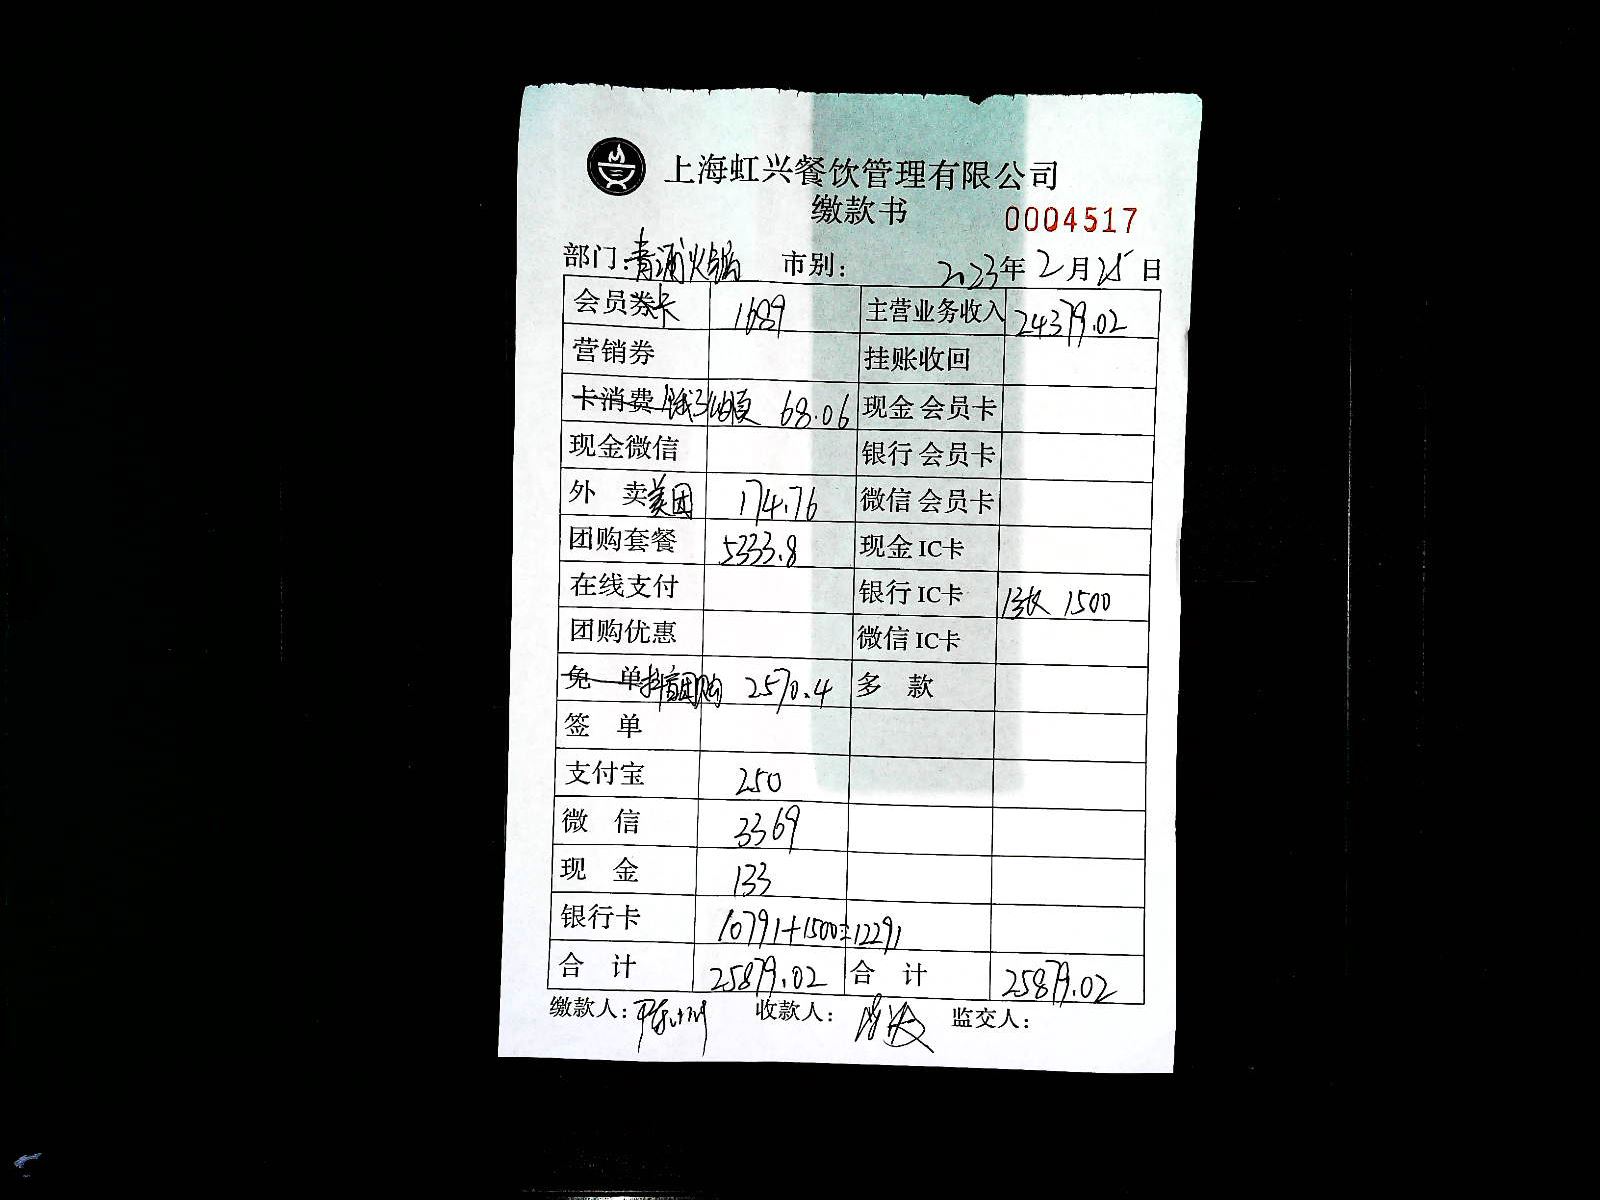 上海虹兴餐饮管理有限公司
缴款书 0004517
部门：青浦火锅 市别： 2023年2月25日
会员券卡 1689 主营业务收入 24379.02
营销券 挂账收回
卡消费 68.06 现金 会员卡
现金微信 银行 会员卡
外 卖美团 174.76 微信 会员卡
团购套餐 5333.8 现金 IC卡
在线支付 银行 IC卡 13枚 1500
团购优惠 微信 IC卡
免 单抖音团购 2570.4 多 款
签 单
支付宝 250
微 信 3369
现 金 133
银行卡 10791+1500=12291
合 计 25879.02 合 计 25879.02
缴款人： 收款人： 监交人：